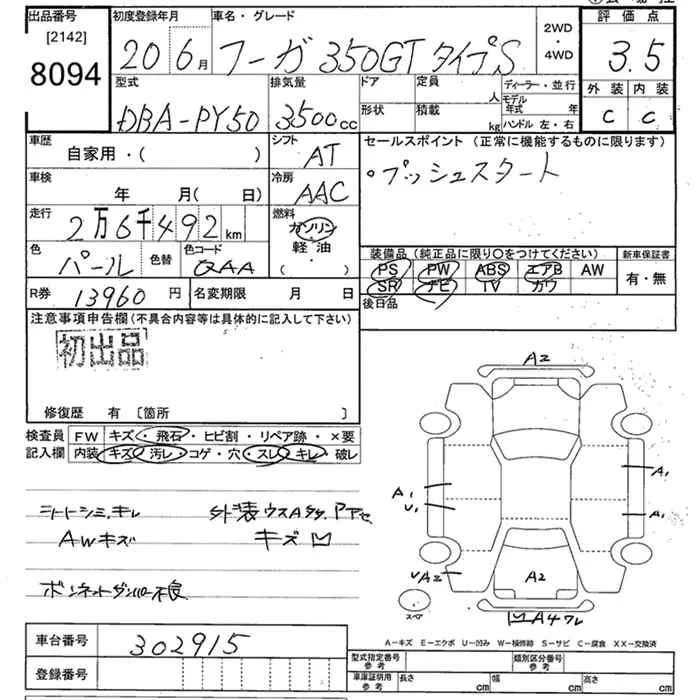 出品番号 [2142] 8094
初度登録年月 20 6月
車名・グレード フーガ 350GT タイプS
2WD・4WD
評価点 3.5
外装 C 内装 C
型式 DBA-PY50
排気量 3500cc
ドア 形状
定員 人 積載 kg
ディーラー・並行
モデル年式 年
ハンドル 左・右
車歴 自家用・( )
シフト AT
車検 年 月( 日)
冷房 AAC
走行 2万6千492km
燃料 ガソリン 軽油 ( )
色 パール 色替
色コード QAA
セールスポイント (正常に機能するものに限ります)
・プッシュスタート
装備品 (純正品に限り〇をつけてください)
PS PW ABS エアB AW
SR ナビ TV カワ
新車保証書 有・無
後日品
R券 13960円
名変期限 月 日
注意事項申告欄(不具合内容等は具体的に記入して下さい)
初出品
修復歴 有 [箇所 ]
検査員記入欄
FW キズ・飛石・ヒビ割・リペア跡・×要
内装 キズ・汚レ・コゲ・穴・スレ・キレ・破レ
シートシミ、キレ
AWキズ
外装ウスA
キズ凹
ボンネットダンパー不良
A2
A1
U1
A1
A1
UA2
A2
スペア
凹A4ワレ
A-キズ E-エクボ U-凹み W-補修跡 S-サビ C-腐食 XX-交換済
車台番号 302915
登録番号
型式指定番号 参考
類別区分番号 参考
車庫証明用 参考 長さ cm 幅 cm 高さ cm